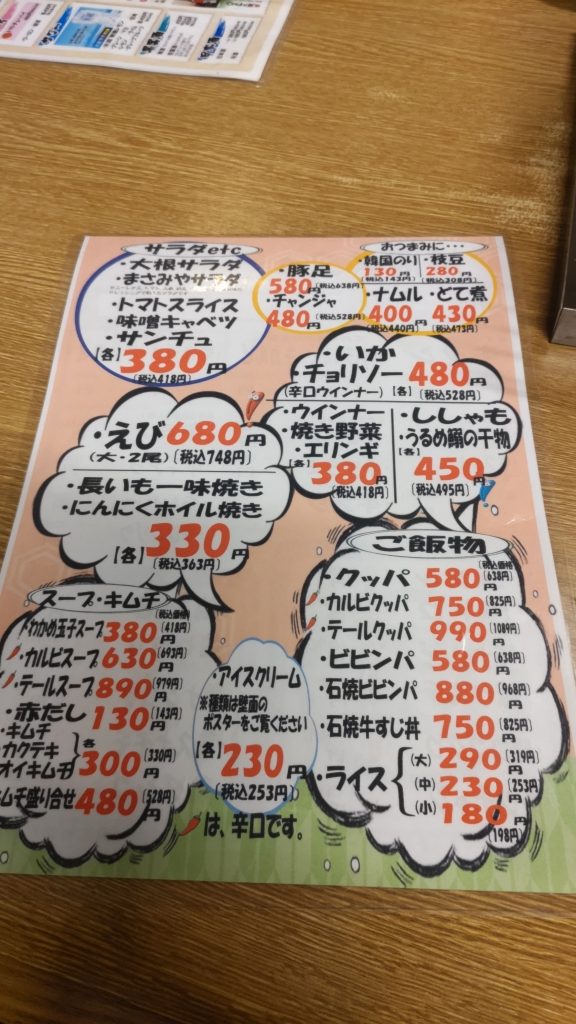 サラダetc
・大根サラダ
・まさみやサラダ
・トマトスライス
・味噌キャベツ
・サンチュ
【各】380円
(税込418円)
・豚足
580円(税込638円)
・チャンジャ
480円(税込528円)
おつまみに・・・
・韓国のり
130円
(税込143円)
・枝豆
280円
(税込308円)
・ナムル
400円
(税込440円)
・どて煮
430円
(税込473円)
・いか
・チョリソー
(辛口ウインナー)
【各】480円
(税込528円)
・ウインナー
・焼き野菜
・エリンギ
【各】380円
(税込418円)
・ししゃも
・うるめ鰯の干物
【各】450円
(税込495円)
・えび680円
(大・2尾)(税込748円)
・長いも一味焼き
・にんにくホイル焼き
【各】330円
(税込363円)
スープ・キムチ
(税込価格)
わかめ玉子スープ380円(418円)
・カルビスープ630円(693円)
・テールスープ890円(979円)
・赤だし130円(143円)
・キムチ
・カクテキ
オイキムチ
各300円(330円)
キムチ盛り合せ480円(528円)
・アイスクリーム
※種類は壁面の
ポスターをご覧ください
【各】230円
(税込253円)
ご飯物
(税込価格)
・クッパ580円(638円)
・カルビクッパ750円(825円)
・テールクッパ990円(1089円)
・ビビンパ580円(638円)
・石焼ビビンパ880円(968円)
・石焼牛すじ丼750円(825円)
・ライス
(大)290円(319円)
(中)230円(253円)
(小)180円(198円)
は、辛口です。